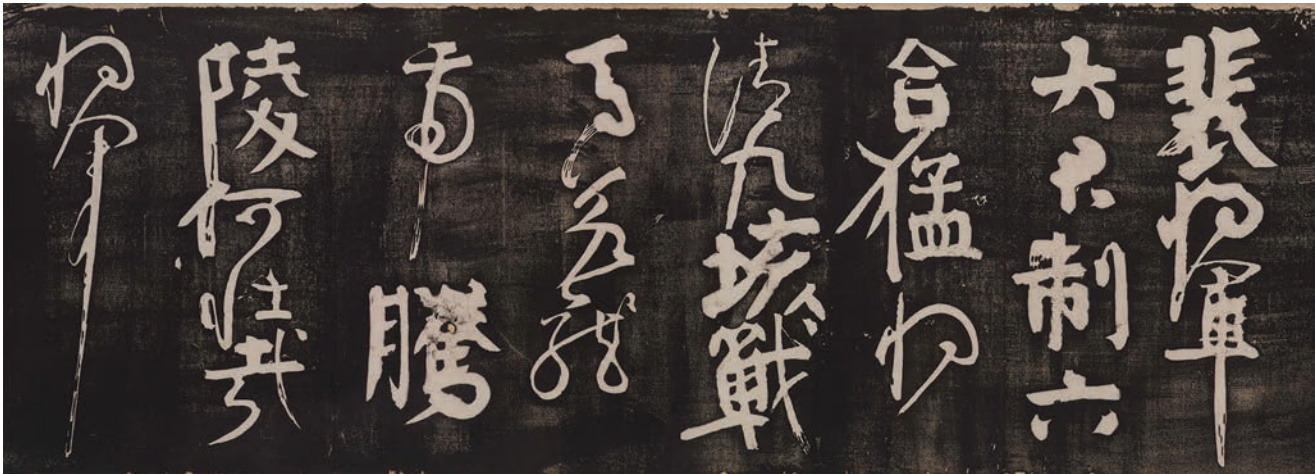 裴將軍
大君制六
合猛將
清九垓戰
馬若龍
虎騰
陵何壯哉
將軍